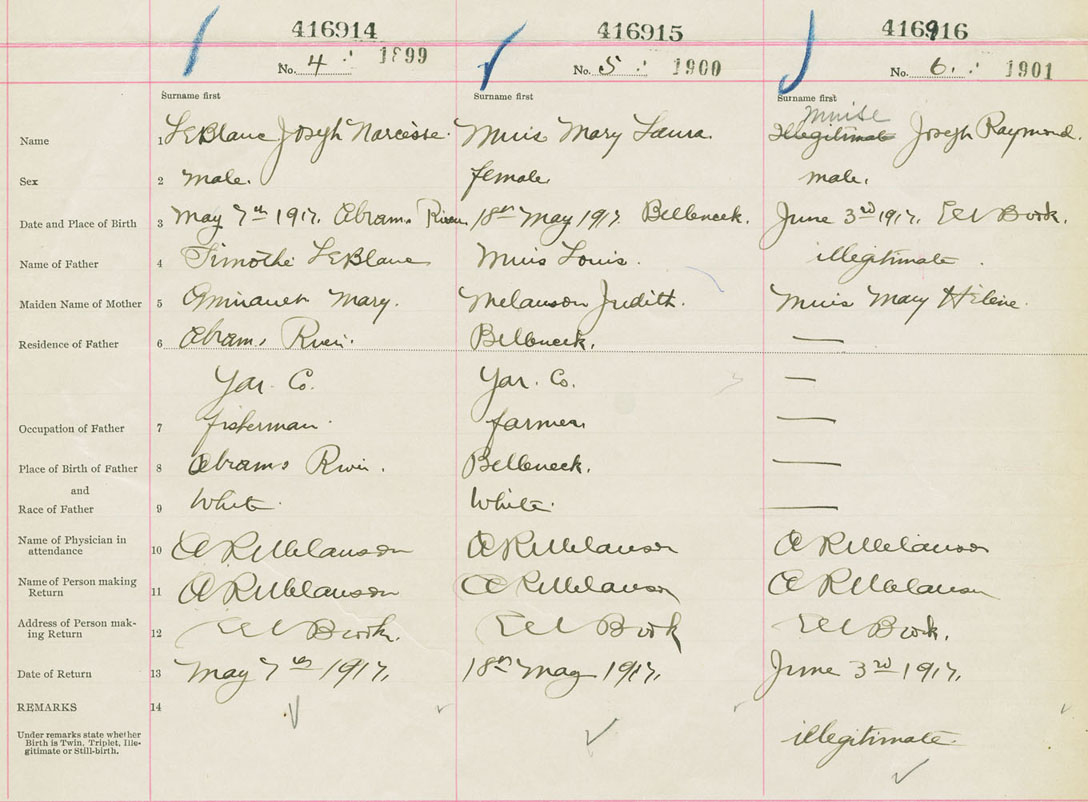 416914 416915 416916
No. 4 1899 No. 5 1900 No. 6. 1901
Surname first Surname first Surname first
Muise
Name 1 LeBlanc Joseph Narcisse. Muis Mary Laura. Illegitimate Joseph Raymond.
Sex 2 male. female male.
Date and Place of Birth 3 May 7th 1917. Abrams River 18th May 1917 Belleneck. June 3rd 1917. Eel Brook.
Name of Father 4 Timothé LeBlanc Muis Louis. illegitimate.
Maiden Name of Mother 5 Mary. Melanson Judith. Muis Mary Hélène.
Residence of Father 6 Abrams River. Belleneck. —
Yar. Co. Yar. Co. —
Occupation of Father 7 fisherman. farmer. —
Place of Birth of Father 8 Abrams River. Belleneck. —
and
Race of Father 9 White. White. —
Name of Physician in
attendance 10 A R Melanson A R Melanson A R Melanson
Name of Person making
Return 11 A R Melanson A R Melanson A R Melanson
Address of Person mak-
ing Return 12 Eel Brook. Eel Brook Eel Brook.
Date of Return 13 May 7th 1917. 18th May 1917. June 3rd 1917.
REMARKS 14
Under remarks state whether
Birth is Twin, Triplet, Ille-
gitimate or Still-birth. illegitimate.